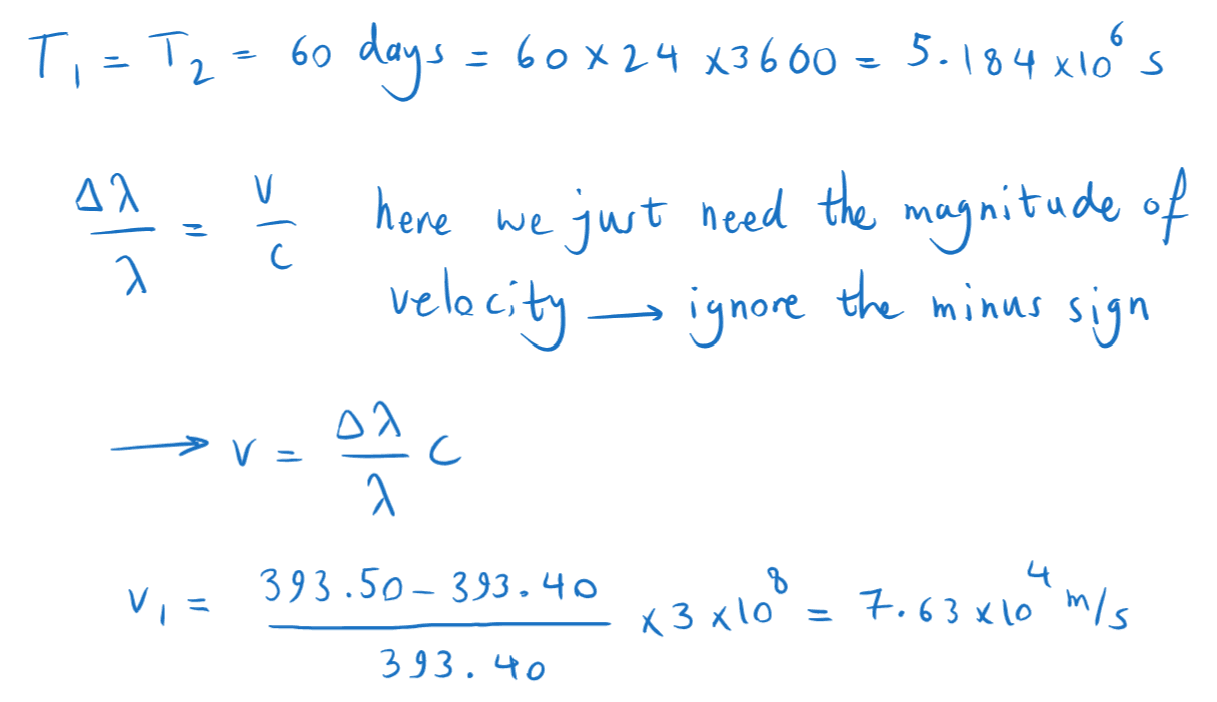 T₁ = T₂ = 60 days = 60 × 24 × 3600 = 5.184 × 10⁶ s
Δλ/λ = v/c here we just need the magnitude of
velocity → ignore the minus sign
→ v = Δλ/λ c
v₁ = (393.50 − 393.40)/393.40 × 3 × 10⁸ = 7.63 × 10⁴ m/s